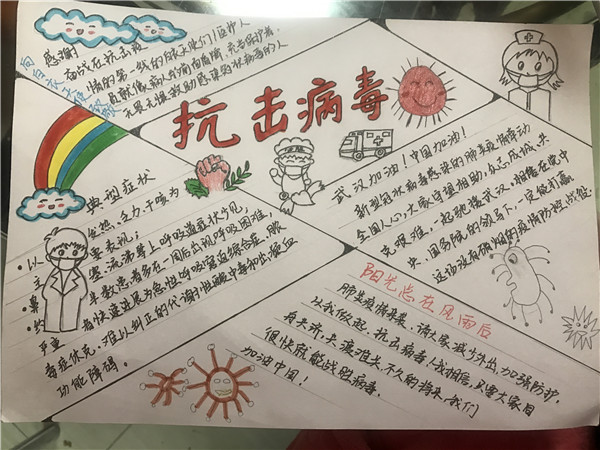 感谢
奋战在抗击疫
情的第一线的白衣天使们!医护人
无畏无惧救助感染冠状病毒的人
抗击病毒
典型症状
·以发热、乏力、干咳为
主要表现;
·鼻塞、流涕等上呼吸道症状少见,
·约半数患者多在一周后出现呼吸困难,
严重者快速进展为急性呼吸窘迫综合症、脓
毒症休克、难以纠正的代谢性酸中毒和出凝血
功能障碍。
武汉加油!中国加油!
新型冠状病毒感染的肺炎疫情牵动
全国人心,大家守望相助,众志成城,共
克艰难,一起驰援武汉。相信在党中
央、国务院的领导下,一定能打赢
这场没有硝烟的疫情防控战役。
阳光总在风雨后
肺炎疫情来袭,请大家减少外出,加强防护,
从我做起,抗击病毒!我相信,只要大家团
结一心,共渡难关,不久的将来,我们
很快就能战胜病毒,
加油中国!